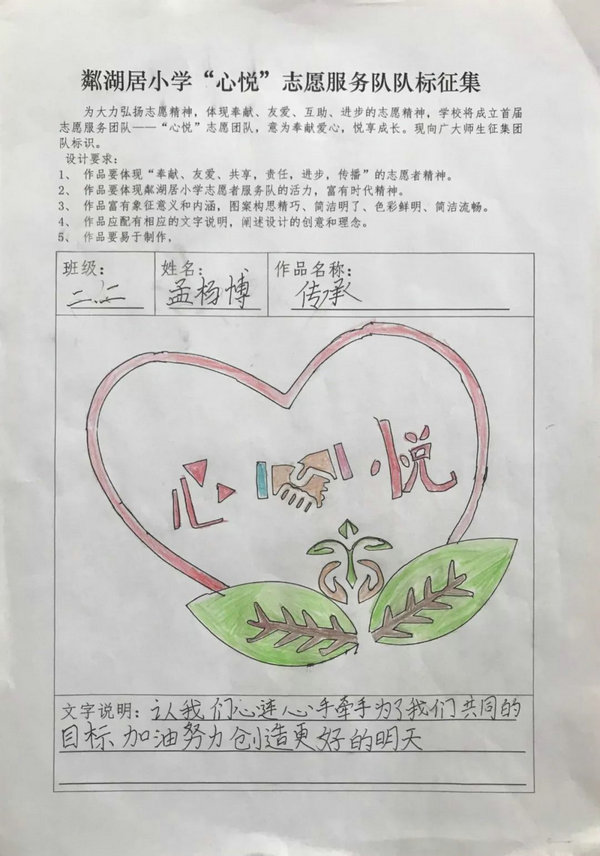 粼湖居小学“心悦”志愿服务队队标征集
为大力弘扬志愿精神，体现奉献、友爱、互助、进步的志愿精神，学校将成立首届
志愿服务团队——“心悦”志愿团队，意为奉献爱心，悦享成长。现向广大师生征集团
队标识。
设计要求：
1、 作品要体现“奉献、友爱、共享，责任，进步，传播”的志愿者精神。
2、 作品要体现粼湖居小学志愿者服务队的活力，富有时代精神。
3、 作品富有象征意义和内涵，图案构思精巧、简洁明了、色彩鲜明、简洁流畅。
4、 作品应配有相应的文字说明，阐述设计的创意和理念。
5、 作品要易于制作，
班级： 姓名： 作品名称：
二.二 孟杨博 传承
心 悦
文字说明：认我们心连心手牵手为了我们共同的
目标 加油努力创造更好的明天